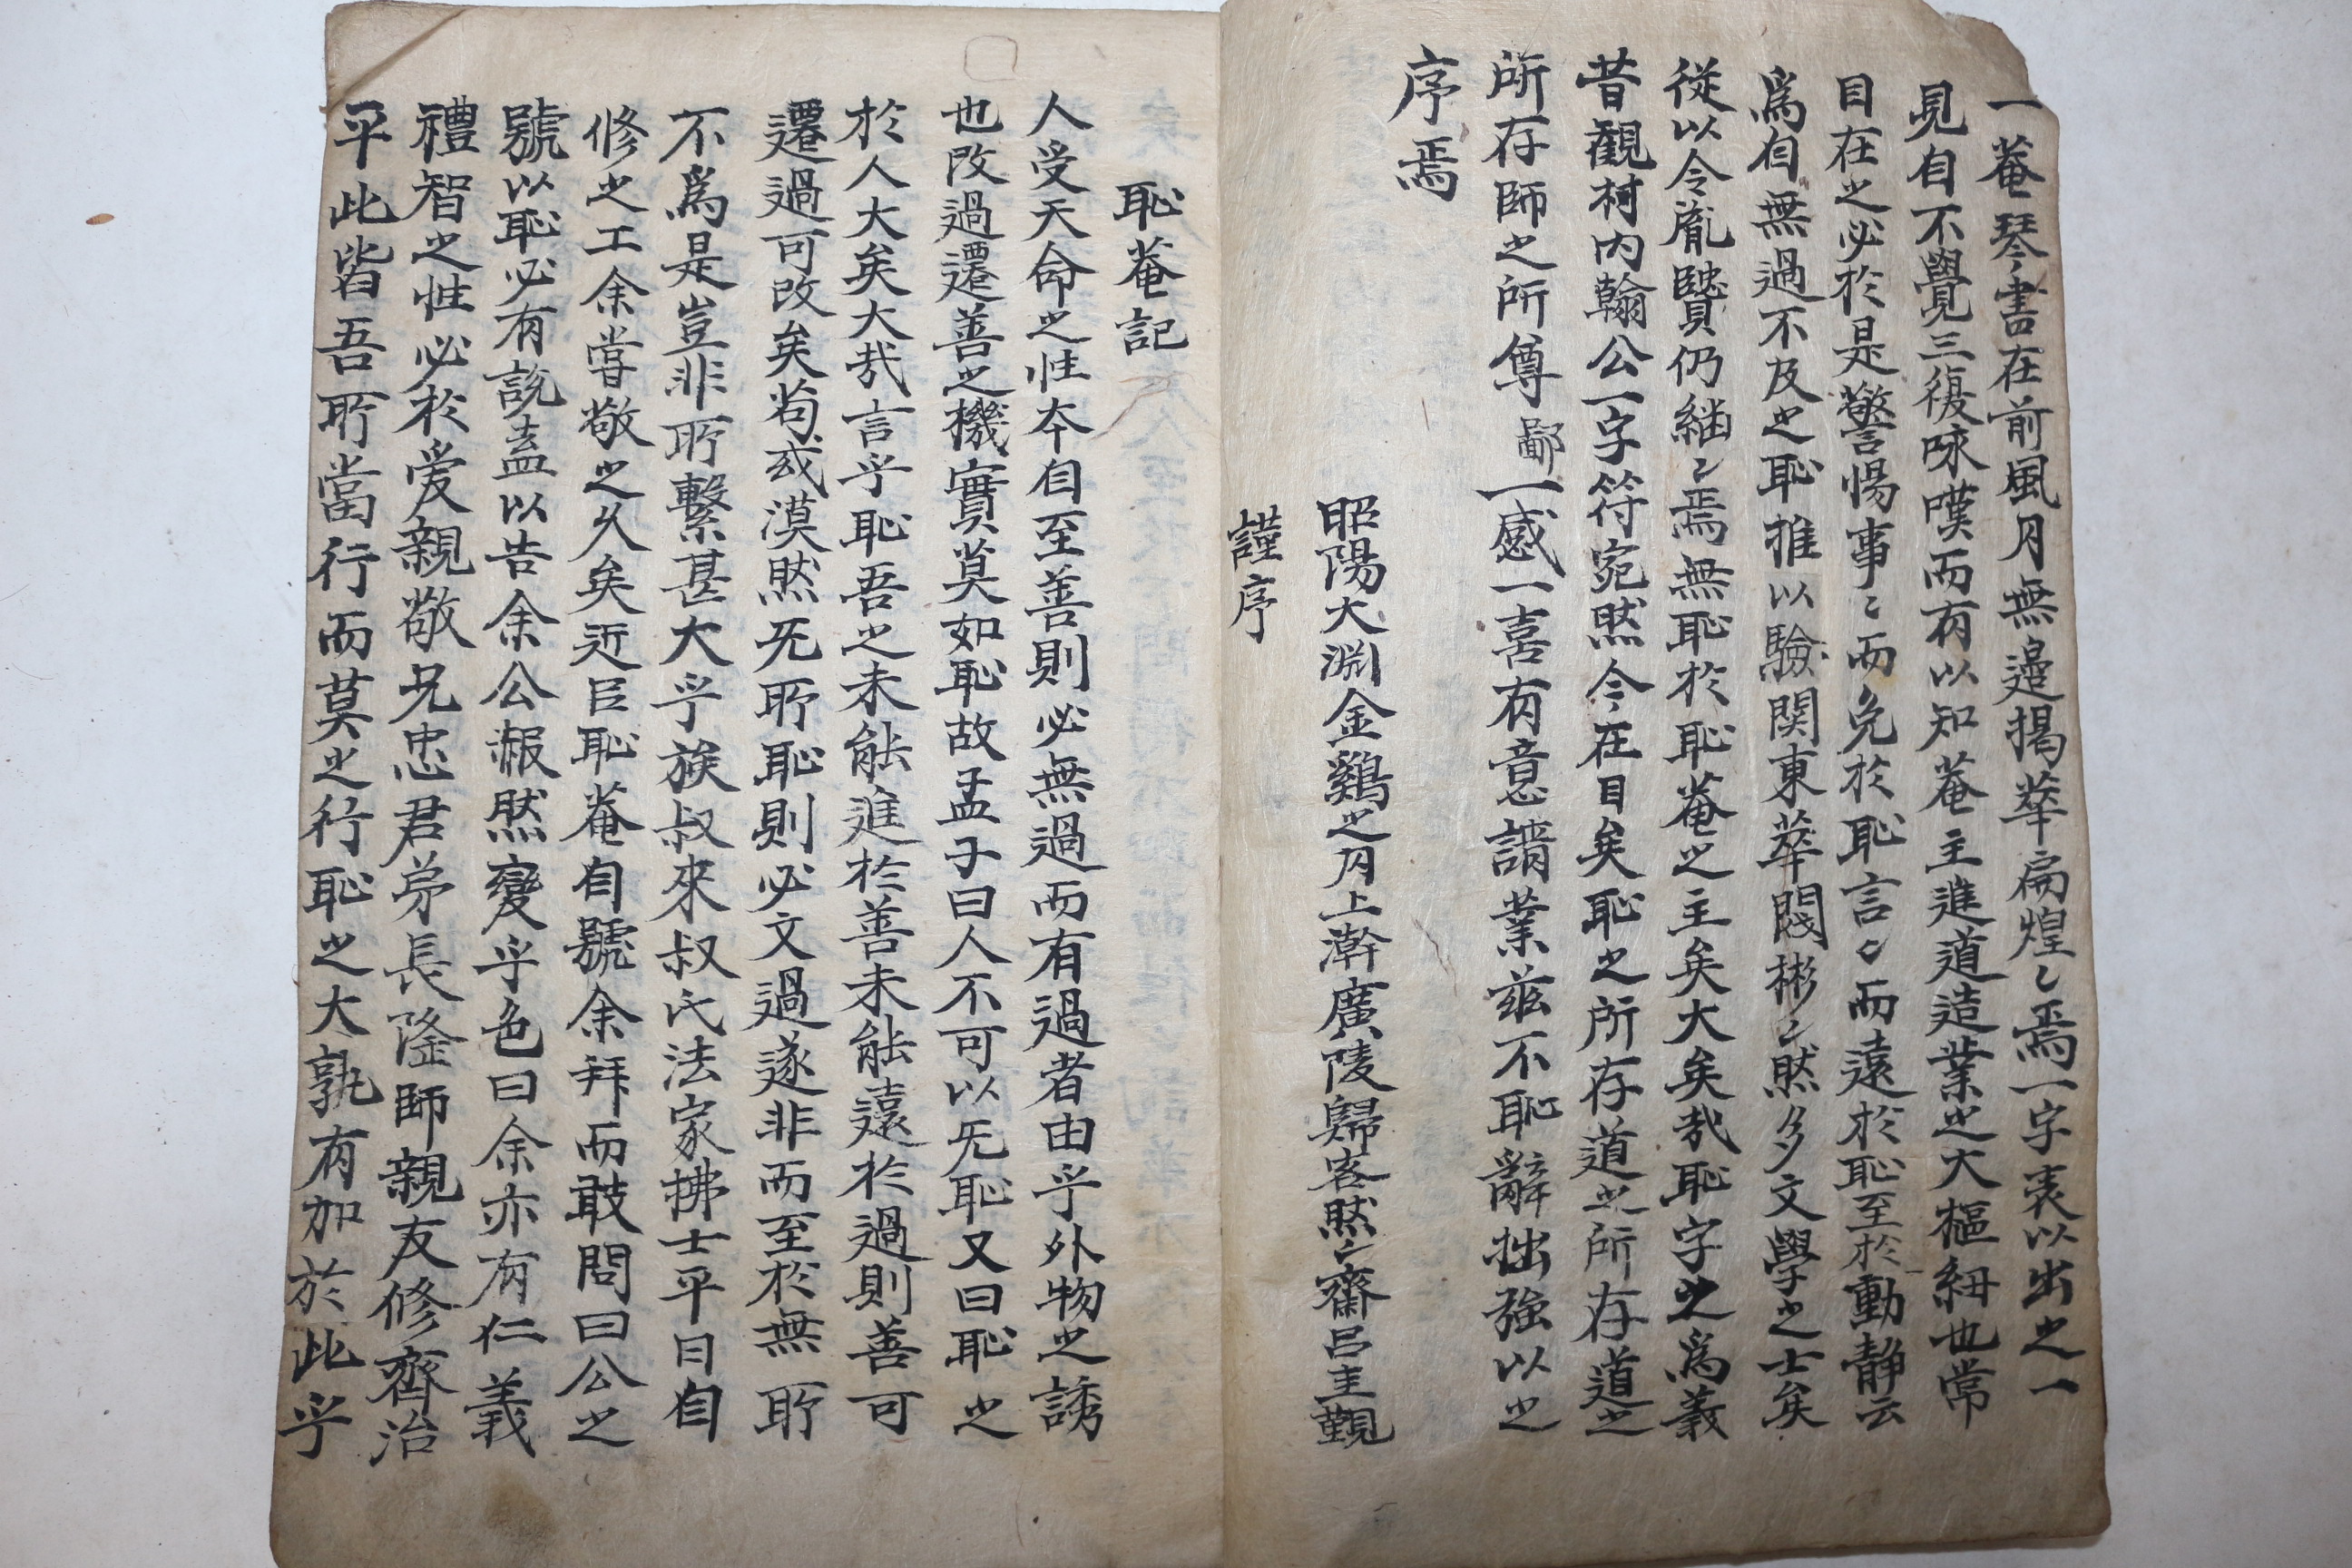 一菴琴書在前風月無邊揭華扁煌〻焉一字表以出之一
見自不覺三復咏嘆而有以知菴主進道造業之大樞紐也常
目在之必於是警惕事〻而免於恥言〻而遠於恥至於動靜云
爲自無過不及之恥推以驗関東華閥彬〻然多文學之士矣
從以令胤賢仍継〻焉無恥於恥菴之主矣大矣哉恥字之爲義
昔觀村内翰公一字符宛然今在目矣恥之所存道之所存道之
所存師之所尊鄙一感一喜有意請業玆不恥辭拙強以之
序焉
昭陽大淵金鷄之月上澣廣陵歸客然〻齋呂圭覲
謹序
恥菴記
人受天命之性夲自至善則必無過而有過者由乎外物之誘
也改過遷善之機實莫如恥故孟子曰人不可以无恥又曰恥之
於人大矣大哉言乎恥吾之未能進於善未能遠於過則善可
遷過可改矣苟或漠然无所恥則必文過遂非而至於無所
不爲是豈非所繫甚大乎族叔來叔氏法家拂士平日自
修之工余嘗敬之久矣近臣恥菴自號余拜而敢問曰公之
號以恥必有説盍以告余公赧然變乎色曰余亦有仁義
禮智之性必於爱親敬兄忠君弟長隆師親友修齊治
平此皆吾所當行而莫之行恥之大孰有加於此乎